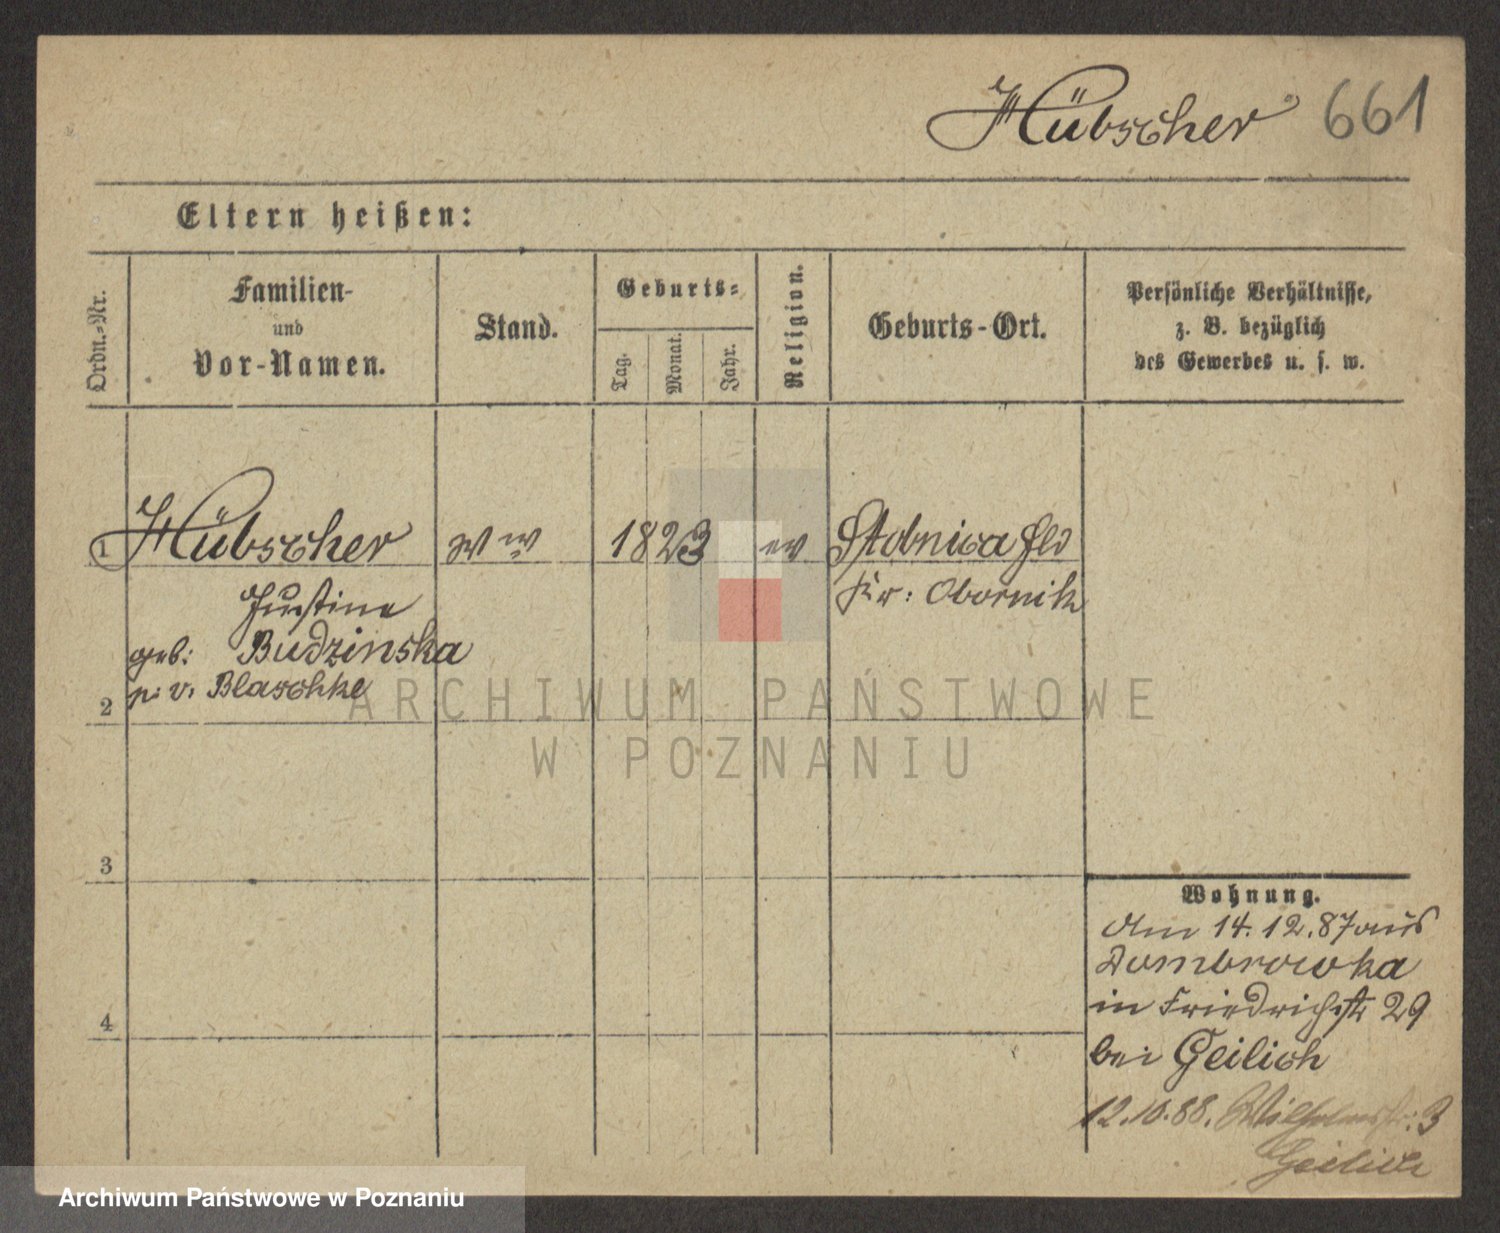 Hübscher 661
Eltern heißen:
Ordn.-Nr.
Familien-
und
Vor-Namen.
Stand.
Geburts-
Tag.
Monat.
Jahr.
Religion.
Geburts-Ort.
Persönliche Verhältnisse,
z. B. bezüglich
des Gewerbes u. s. w.
1 Hübscher ww 1823 ev Stobnica Hld
Justine Kr: Obornik
geb: Budzinska
2 p: v: Blaschke
ARCHIWUM PAŃSTWOWE
W POZNANIU
3
4
Wohnung.
Am 14.12.87 aus
Dombrowka
in Friedrichstr 29
bei Geilich
12.10.88. Wilhelmstr: 3
Geilich
Archiwum Państwowe w Poznaniu